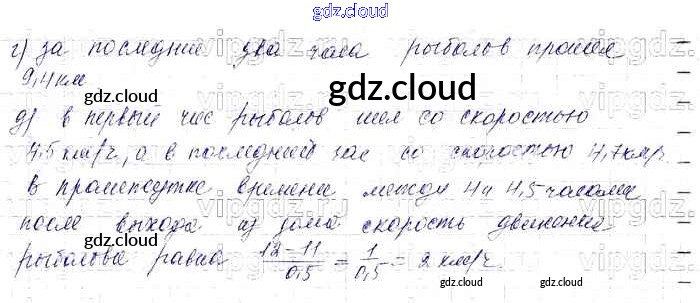 gdz.cloud
г) за последние два часа рыболов прошел
9,4 км gdz.cloud
д) в первый час рыболов шел со скоростью
4,5 км/ч, а в последний час со скоростью 4,7 км/ч.
В промежутке времени между 4 и 4,5 часами
после выхода из дома скорость движения
gdz.cloud gdz.cloud
рыболова равна (12-11)/0,5 = 1/0,5 = 2 км/ч.
gdz.cloud